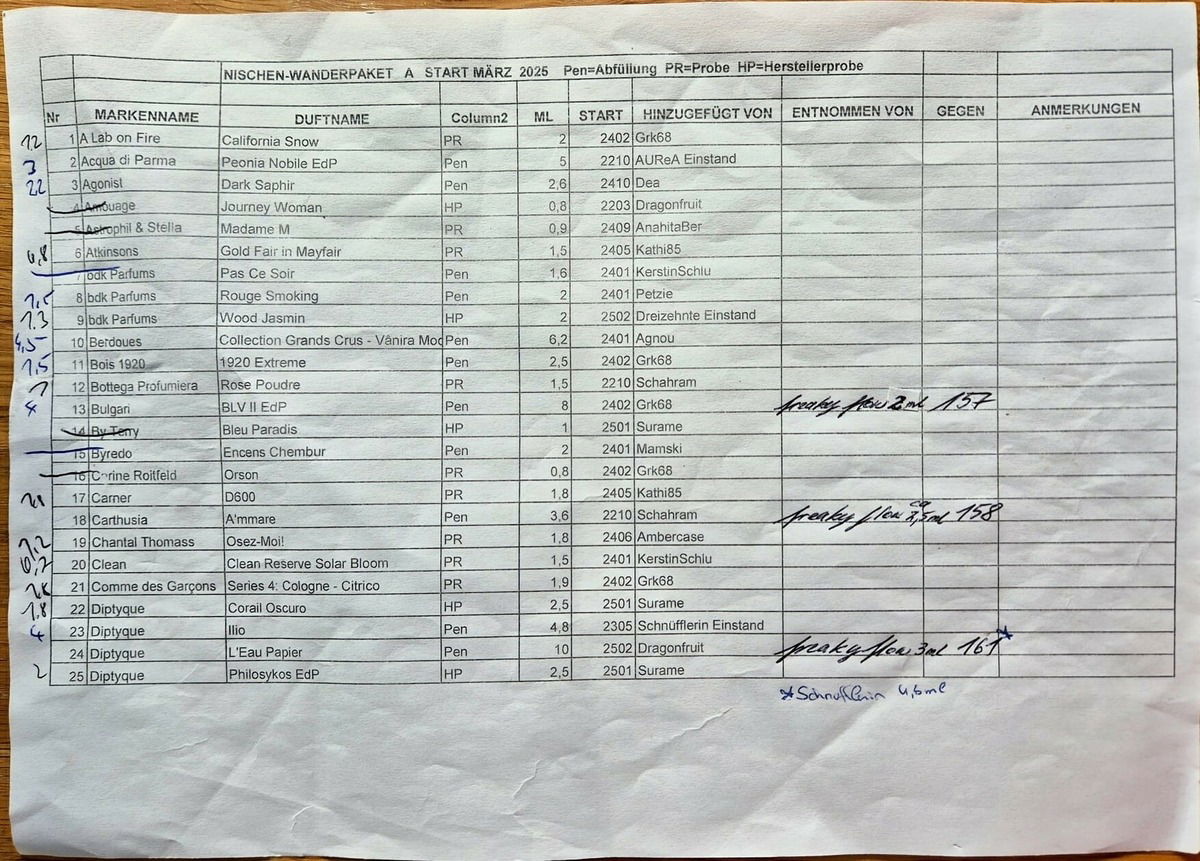 NISCHEN-WANDERPAKET A START MÄRZ 2025 Pen=Abfüllung PR=Probe HP=Herstellerprobe
Nr MARKENNAME DUFTNAME Column2 ML START HINZUGEFÜGT VON ENTNOMMEN VON GEGEN ANMERKUNGEN
1 A Lab on Fire California Snow PR 2 2402 Grk68
3 2 Acqua di Parma Peonia Nobile EdP Pen 5 2210 AUReA Einstand
22 3 Agonist Dark Saphir Pen 2,6 2410 Dea
4 Amouage Journey Woman HP 0,8 2203 Dragonfruit
5 Astrophil & Stella Madame M PR 0,9 2409 AnahitaBer
6 Atkinsons Gold Fair in Mayfair PR 1,5 2405 Kathi85
7 bdk Parfums Pas Ce Soir Pen 1,6 2401 KerstinSchlu
1,5 8 bdk Parfums Rouge Smoking Pen 2 2401 Petzie
1.3 9 bdk Parfums Wood Jasmin HP 2 2502 Dreizehnte Einstand
10 Berdoues Collection Grands Crus - Vânira Moo Pen 6,2 2401 Agnou
1,5 11 Bois 1920 1920 Extreme Pen 2,5 2402 Grk68
1 12 Bottega Profumiera Rose Poudre PR 1,5 2210 Schahram
4 13 Bulgari BLV II EdP Pen 8 2402 Grk68 freaky flow 2 ml 157
14 By Terry Bleu Paradis HP 1 2501 Surame
15 Byredo Encens Chembur Pen 2 2401 Mamski
16 Corine Roitfeld Orson PR 0,8 2402 Grk68
17 Carner D600 PR 1,8 2405 Kathi85
18 Carthusia A'mmare Pen 3,6 2210 Schahram freaky flow ca 2,5ml 158
1,2 19 Chantal Thomass Osez-Moi! PR 1,8 2406 Ambercase
20 Clean Clean Reserve Solar Bloom PR 1,5 2401 KerstinSchlu
21 Comme des Garçons Series 4: Cologne - Citrico PR 1,9 2402 Grk68
1,8 22 Diptyque Corail Oscuro HP 2,5 2501 Surame
4 23 Diptyque Ilio Pen 4,8 2305 Schnüfflerin Einstand
24 Diptyque L'Eau Papier Pen 10 2502 Dragonfruit freaky flow 3ml 161*
2 25 Diptyque Philosykos EdP HP 2,5 2501 Surame
*Schnüfflerin 4,6ml